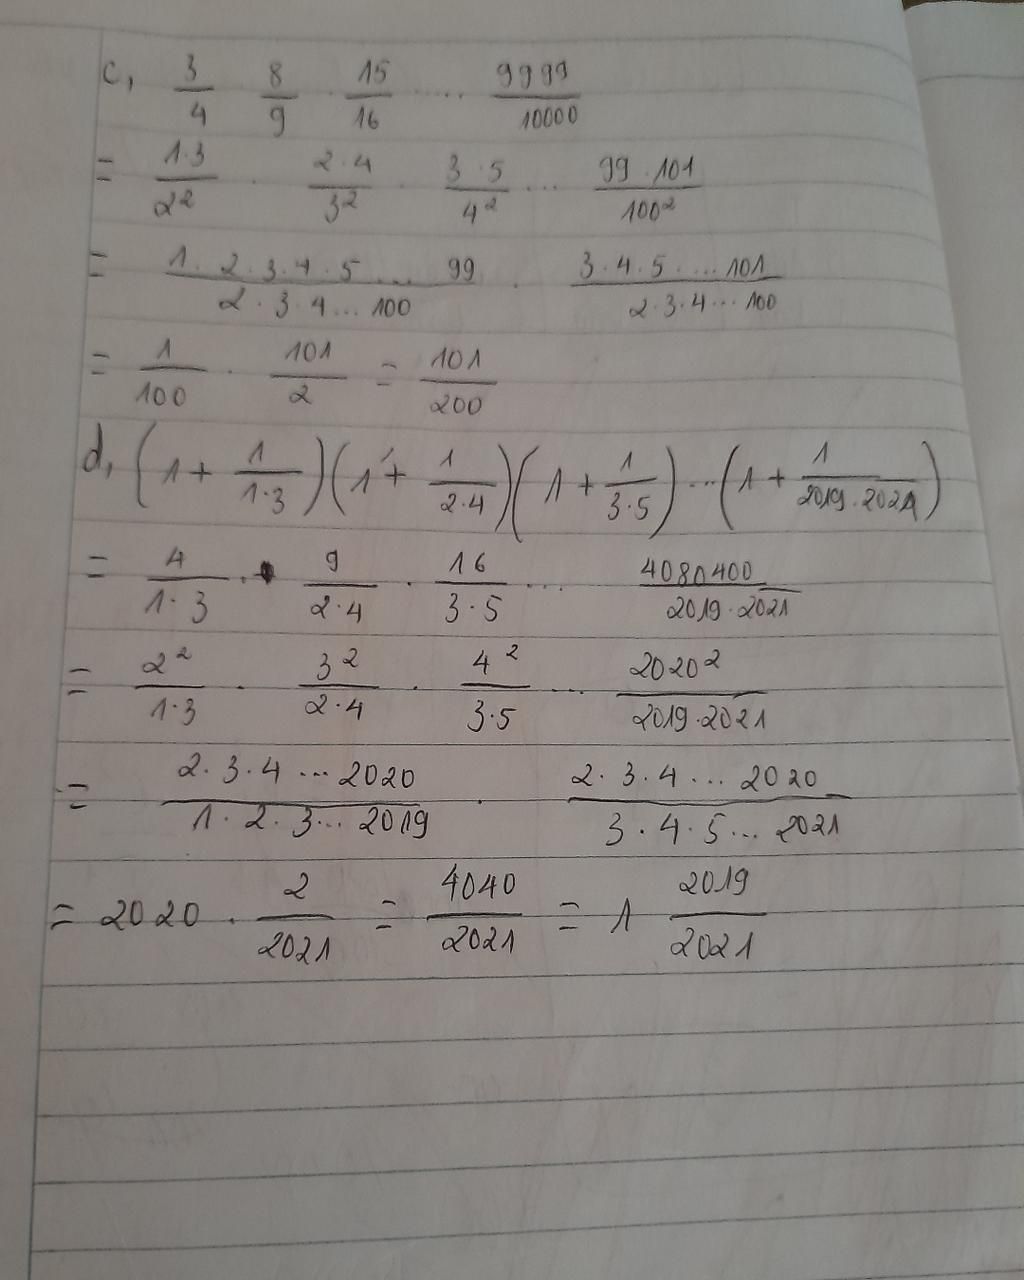 c, 3/4 · 8/9 · 15/16 ..... 9999/10000
= 1·3/2² · 2·4/3² · 3·5/4² ... 99·101/100²
= 1·2·3·4·5 ... 99/2·3·4...100 · 3·4·5·...101/2·3·4...100
= 1/100 · 101/2 = 101/200
d, (1 + 1/1·3)(1 + 1/2·4)(1 + 1/3·5)...(1 + 1/2019·2021)
= 4/1·3 · 9/2·4 · 16/3·5 ... 4080400/2019·2021
= 2²/1·3 · 3²/2·4 · 4²/3·5 ... 2020²/2019·2021
= 2·3·4...2020/1·2·3...2019 · 2·3·4...2020/3·4·5...2021
= 2020 · 2/2021 = 4040/2021 = 1 2019/2021